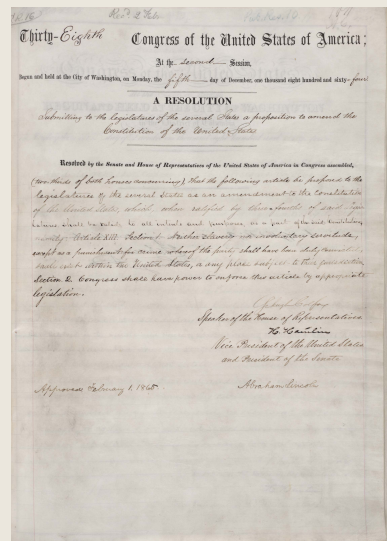 Thirty-Eighth Congress of the United States of America;
At the second Session,
Begun and held at the City of Washington, on Monday, the fifth day of December, one thousand eight hundred and sixty-four
A RESOLUTION
Submitting to the legislatures of the several States a proposition to amend the
Constitution of the United States
Resolved by the Senate and House of Representatives of the United States of America in Congress assembled,
(two thirds of both houses concurring), that the following article be proposed to the
legislatures of the several States as an amendment to the Constitution
of the United States, which, when ratified by three fourths of said Legis
latures shall be valid, to all intents and purposes, as a part of the said Constitution
namely: Article XIII. Section 1. Neither slavery nor involuntary servitude,
except as a punishment for crime whereof the party shall have been duly convicted,
shall exist within the United States, or any place subject to their jurisdiction.
Section 2. Congress shall have power to enforce this article by appropriate
legislation.
Schuyler Colfax
Speaker of the House of Representatives
H. Hamlin
Vice President of the United States
and President of the Senate
Approved February 1, 1865
Abraham Lincoln